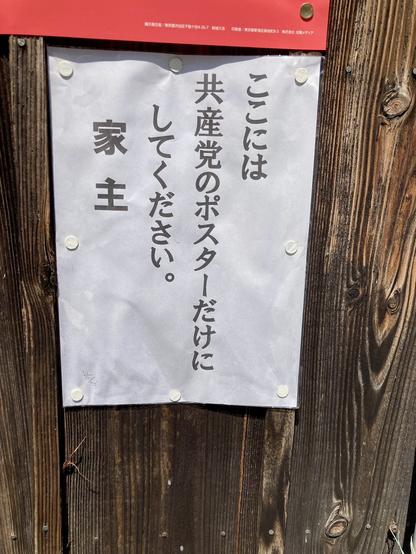 ここには
共産党のポスターだけに
してください。
家主